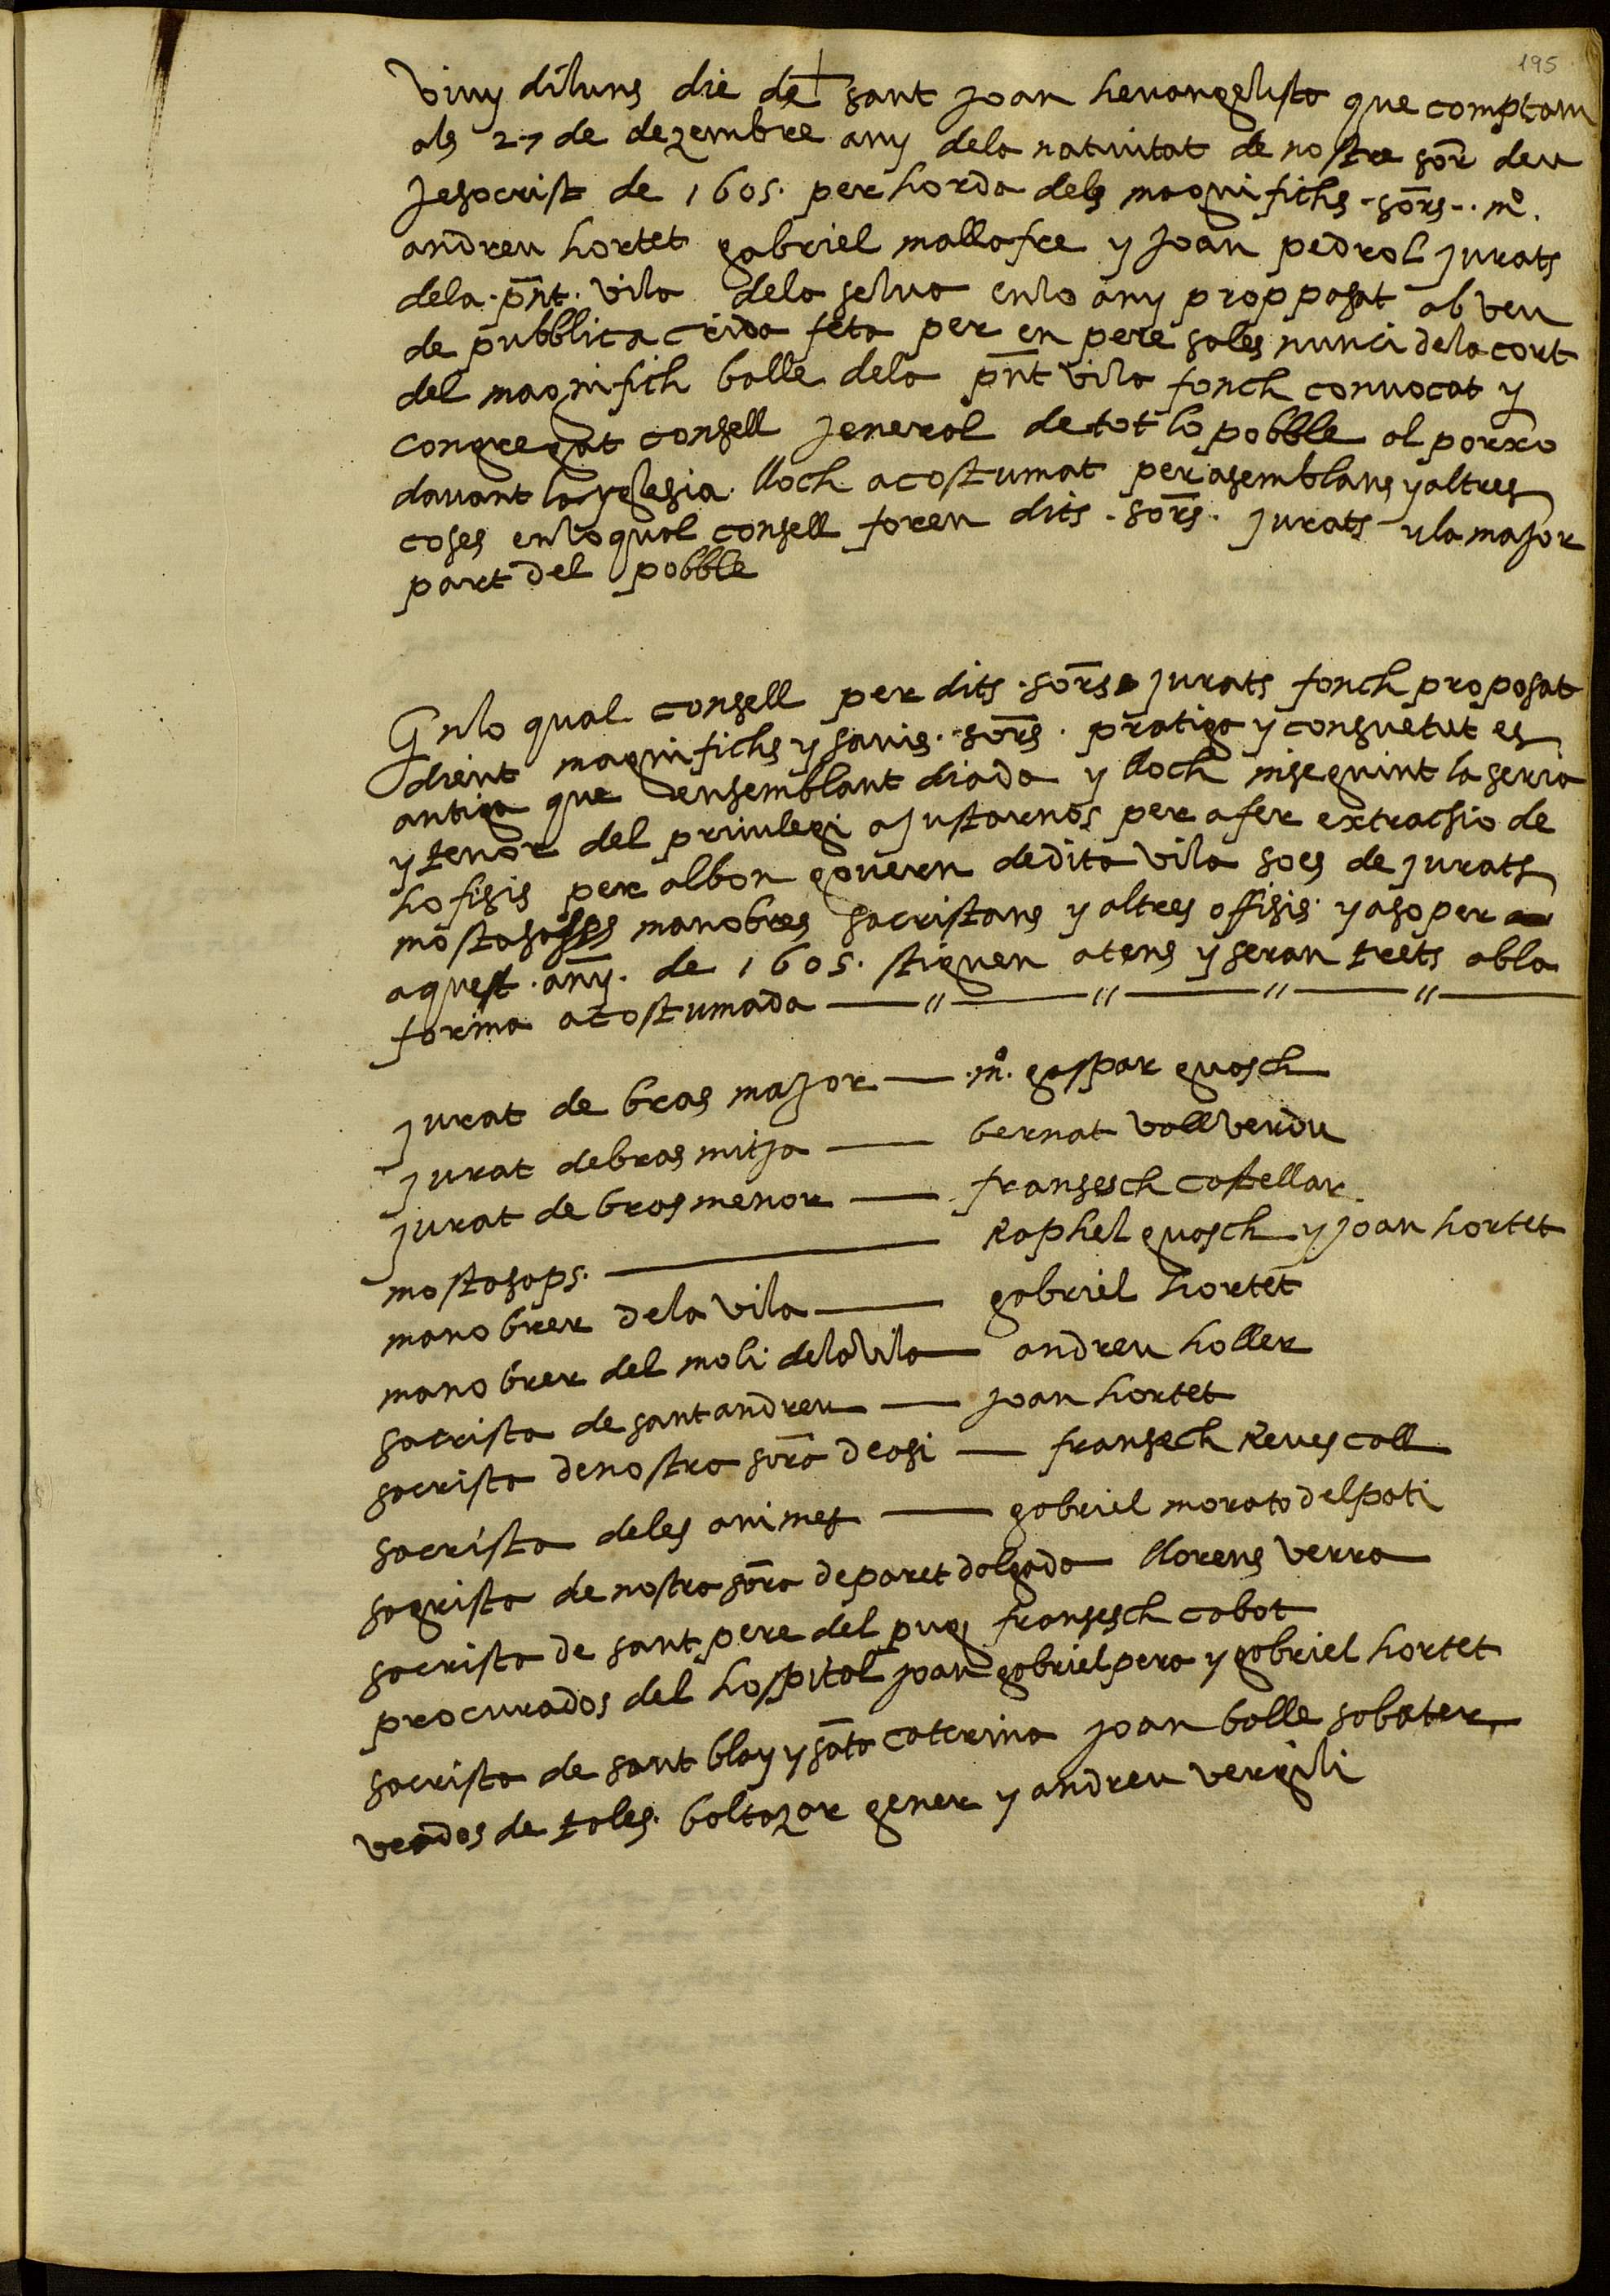 195
Vuuy diluns die de sant joan hevangelista que comptam
als 27 de dezembre any dela nativitat de nostre sor̄ deu
Jesocrist de 1605. per horda dels magnifichs .sor̄s.. mº.
andreu hortet gabriel mallafre y Joan pedrol jurats
dela .pn̄t. vila dela selva enlo any propposat ab veu
de pubblica crida feta per en pere sales nunci dela cort
del magnifich balle dela pn̄t vila fonch convocat y
congregat consell Jeneral de tot lo pobble al porxo
davant la yglesia. lloch acostumat per asemblans y altres
coses enlo qual consell foren dits .sor̄s. jurats y la major
part del pobble
Enlo qual consell per dits .sor̄s. jurats fonch proposat
dient magnifichs y savis. sor̄s. pratiga y consuetut es
antiga que ensemblant diada y lloch inseguint la seria
y tenor del privilegi ajustarnos per a fer extracsio de
hofisis per al bon govern de dita vila soes de jurats
mostasaps manobres sacristans y altres offisis. y aso per
aquest .any̅. de 1605. stiguen atens y seran trets ab la
forma acostumada — " — " — " — " —
jurat de bras major — .mº. gaspar guasch
jurat de bras mitja — bernat vallverdu
jurat de bras menor — fransesch castellar.
mostasaps. — Raphel guasch y joan hortet
manobrer dela vila — gabriel hortet
manobrer del moli dela vila — andreu holler
sacrista de sant andreu — joan hortet
sacrista de nostra sor̄a deasi — fransech Revescall
sacrista deles animes — gabriel morato del pati
sagrista de nostra sor̄a de paret dalgada llorens verra
sacrista de sant pere del pug fransesch cabot
procurados del hospital joan gabriel pera y gabriel hortet
sacrista de sant blay y sāta caterina joan balle sabater
veados de tales. baltazar gener y andreu vergili